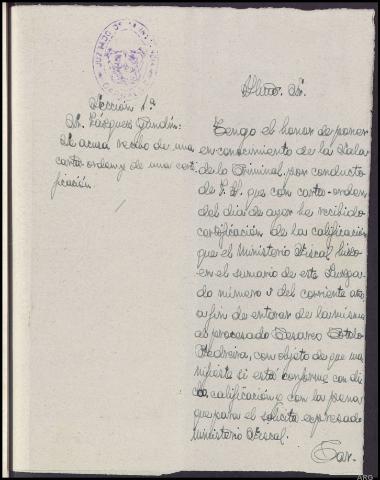 JUZGADO DE
Sección 1ª
Sr. Vázquez Gundín:
Se acusa recibo de una
carta-orden y de una cert-
ificación
Iltmo. Sr.
Tengo el honor de poner
en conocimiento de la Sala
de lo Criminal, por conducto
de V.S. que con carta-orden
del día de ayer ha recibido
certificación de la calificación
que el Ministerio Fiscal hizo
en el sumario de este Juzga-
do número del corriente año
a fin de enterar de la misma
al procesado Cesareo Sotelo
Pedreira, con objeto de que ma-
nifieste si está conforme con di-
cha calificación y con la pena
que para el solicita expresado
Ministerio Fiscal.
ARG